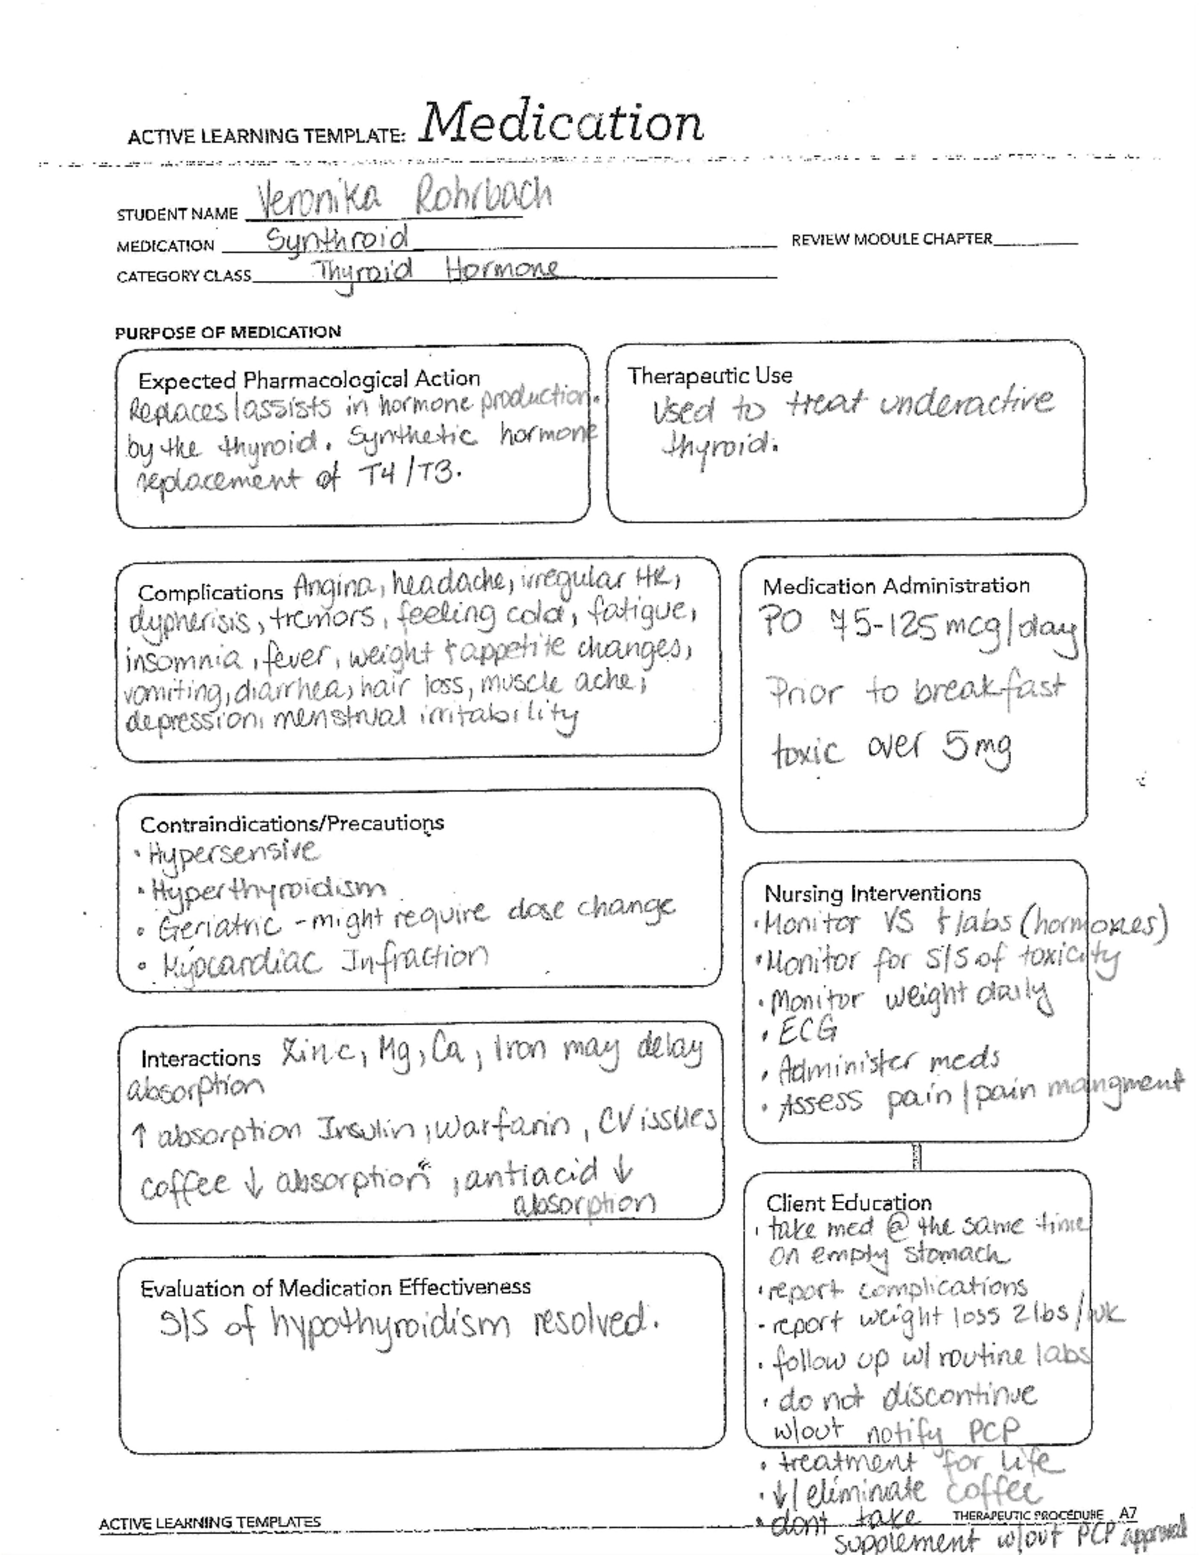 ACTIVE LEARNING TEMPLATE: Medication
STUDENT NAME Veronika Rohrbach
MEDICATION Synthroid
REVIEW MODULE CHAPTER
CATEGORY CLASS Thyroid Hormone
PURPOSE OF MEDICATION
Expected Pharmacological Action
Replaces/assists in hormone production.
by the thyroid. Synthetic hormone
replacement of T4/T3.
Therapeutic Use
Used to treat underactive
thyroid.
Complications Angina, headache, irregular HR,
dypherisis, tremors, feeling cold, fatigue,
insomnia, fever, weight & appetite changes,
vomiting, diarrhea, hair loss, muscle ache,
depression, menstrual irritability
Medication Administration
PO 75-125 mcg/day
Prior to breakfast
toxic over 5mg
Contraindications/Precautions
• Hypersensive
• Hyperthyroidism
• Geriatric - might require dose change
• Myocardiac Infraction
Nursing Interventions
• Monitor VS & labs (hormones)
• Monitor for S/S of toxicity
• Monitor weight daily
• ECG
• Administer meds
• Assess pain/pain mangment
Interactions Zinc, Mg, Ca, Iron may delay
absorption
↑ absorption Insulin, Warfarin, CV issues
coffee ↓ absorption, antiacid ↓
absorption
Client Education
• take med @ the same time
on empty stomach
• report complications
- report weight loss 2lbs/wk
• follow up w/ routine labs
• do not discontinue
w/out notify PCP
• treatment for life
• ↓/eliminate coffee
• dont take
supplement w/out PCP approval
Evaluation of Medication Effectiveness
S/S of hypothyroidism resolved.
ACTIVE LEARNING TEMPLATES
THERAPEUTIC PROCEDURE A7